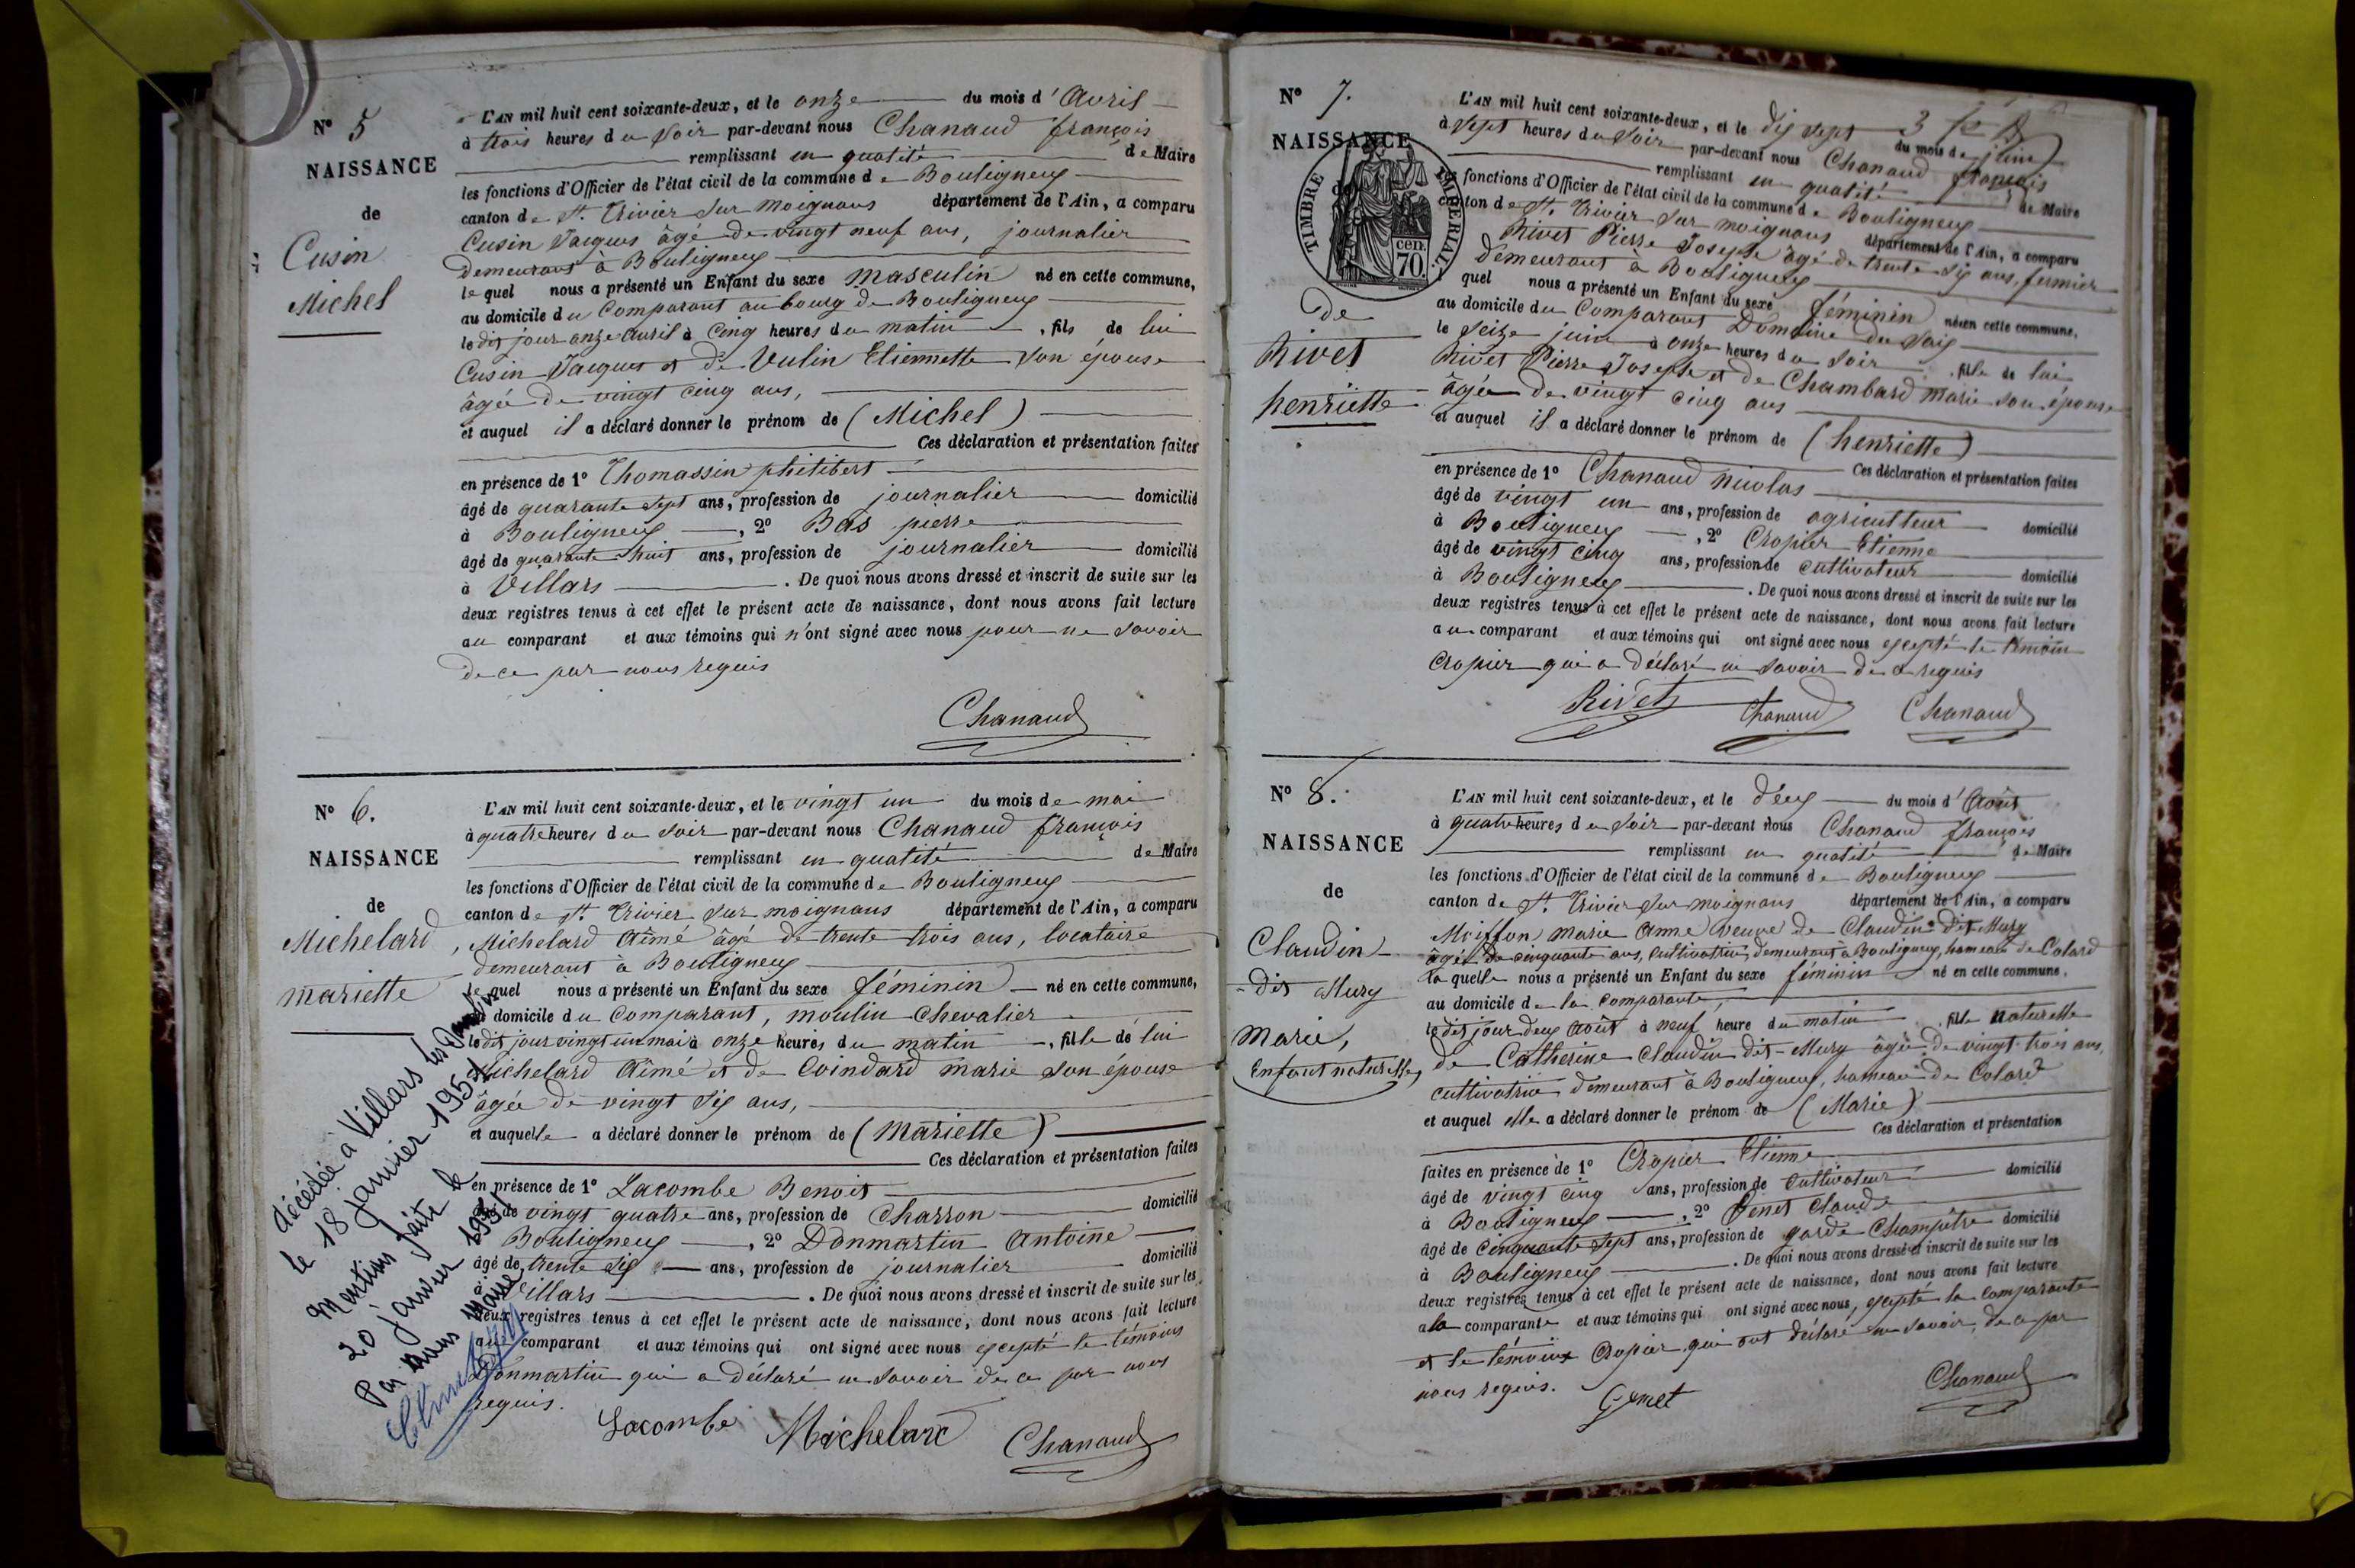 N° 5
NAISSANCE
de
Cusin
Michel
L'AN mil huit cent soixante-deux, et le onze du mois d'Avril
à trois heures du soir par-devant nous Chanaud françois
remplissant en qualité de Maire
les fonctions d'Officier de l'état civil de la commune de Bouligneux
canton de St. Trivier sur moignans département de l'Ain, a comparu
Cusin Jacques âgé de vingt neuf ans, journalier
demeurant à Bouligneux
lequel nous a présenté un Enfant du sexe masculin né en cette commune,
au domicile du Comparant au bourg de Bouligneux
le dit jour onze avril à cinq heures du matin, fils de lui
Cusin Jacques et de Vulin Etiennette son épouse
âgée de vingt cinq ans,
et auquel il a déclaré donner le prénom de (Michel)
Ces déclaration et présentation faites
en présence de 1° Thomassin philibert
âgé de quarante sept ans, profession de journalier domicilié
à Bouligneux, 2° Bas pierre
âgé de quarante huit ans, profession de journalier domicilié
à Villars. De quoi nous avons dressé et inscrit de suite sur les
deux registres tenus à cet effet le présent acte de naissance, dont nous avons fait lecture
au comparant et aux témoins qui n'ont signé avec nous pour ne savoir
de ce par nous requis
Chanaud
N° 6.
NAISSANCE
de
Michelard,
mariette
L'AN mil huit cent soixante-deux, et le vingt un du mois de mai
à quatre heures du soir par-devant nous Chanaud françois
remplissant en qualité de Maire
les fonctions d'Officier de l'état civil de la commune de Bouligneux
canton de St. Trivier sur moignans département de l'Ain, a comparu
Michelard Aimé âgé de trente trois ans, locataire
demeurant à Bouligneux
lequel nous a présenté un Enfant du sexe féminin né en cette commune,
au domicile du Comparant, moulin Chevalier
le dit jour vingt un mai à onze heures du matin, fille de lui
Michelard Aimé et de Coindard marie son épouse
âgée de vingt six ans,
et auquelle a déclaré donner le prénom de (Mariette)
Ces déclaration et présentation faites
en présence de 1° Lacombe Benoit
âgé de vingt quatre ans, profession de Charron domicilié
Bouligneux, 2° Donmartin Antoine
âgé de trente six ans, profession de journalier domicilié
à Villars. De quoi nous avons dressé et inscrit de suite sur les
deux registres tenus à cet effet le présent acte de naissance, dont nous avons fait lecture
au comparant et aux témoins qui ont signé avec nous excepté le témoins
Donmartin qui a déclaré ne savoir de ce par nous
requis.
Lacombe Michelard Chanaud
décédée à Villars les Dombes
le 18 janvier 1951
Mention faite le
20 janvier 1951
Par nous Maire
N° 7.
NAISSANCE
de
Rivet
henriette
TIMBRE IMPERIAL
70 cen.
L'AN mil huit cent soixante-deux, et le dix sept du mois de juin
à sept heures du soir par-devant nous Chanaud françois
remplissant en qualité de Maire
les fonctions d'Officier de l'état civil de la commune de Bouligneux
canton de St. Trivier sur moignans département de l'Ain, a comparu
Rivet Pierre Joseph âgé de trente six ans, fermier
demeurant à Bouligneux
quel nous a présenté un Enfant du sexe féminin né en cette commune,
au domicile du Comparant Domaine du Sais
le seize juin à onze heures du soir, fille de lui
Rivet Pierre Joseph et de Chambard marie son épouse
âgée de vingt cinq ans
et auquel il a déclaré donner le prénom de (henriette)
Ces déclaration et présentation faites
en présence de 1° Chanaud nicolas
âgé de vingt un ans, profession de agriculteur domicilié
à Bouligneux, 2° Cropier Etienne
âgé de vingt cinq ans, profession de cultivateur domicilié
à Bouligneux. De quoi nous avons dressé et inscrit de suite sur les
deux registres tenus à cet effet le présent acte de naissance, dont nous avons fait lecture
au comparant et aux témoins qui ont signé avec nous excepté le témoin
Cropier qui a déclaré ne savoir de ce requis
Rivet Chanaud Chanaud
N° 8.
NAISSANCE
de
Claudin
-dit Mury
Marie,
Enfant naturelle,
L'AN mil huit cent soixante-deux, et le deux du mois d'Août
à quatre heures du soir par-devant nous Chanaud françois
remplissant en qualité de Maire
les fonctions d'Officier de l'état civil de la commune de Bouligneux
canton de St. Trivier sur moignans département de l'Ain, a comparu
Moiffon marie Anne veuve de Claudin dit Mury
âgée de cinquante ans, cultivatrice, demeurant à Bouligneux, hameau de Colard
la quelle nous a présenté un Enfant du sexe féminin né en cette commune,
au domicile de la comparante,
le dit jour deux Août à neuf heure du matin, fille naturelle
de Catherine Claudin dit-Mury âgée de vingt trois ans,
cultivatrice demeurant à Bouligneux, hameau de Colard
et auquel elle a déclaré donner le prénom de (Marie)
Ces déclaration et présentation
faites en présence de 1° Cropier Etienne
âgé de vingt cinq ans, profession de Cultivateur domicilié
à Bouligneux, 2° Genet Claude
âgé de cinquante sept ans, profession de garde Champêtre domicilié
à Bouligneux. De quoi nous avons dressé et inscrit de suite sur les
deux registres tenus à cet effet le présent acte de naissance, dont nous avons fait lecture
a la comparante et aux témoins qui ont signé avec nous, excepté la comparante
et le témoin Cropier qui ont déclaré ne savoir, de ce par
nous requis.
Genet Chanaud